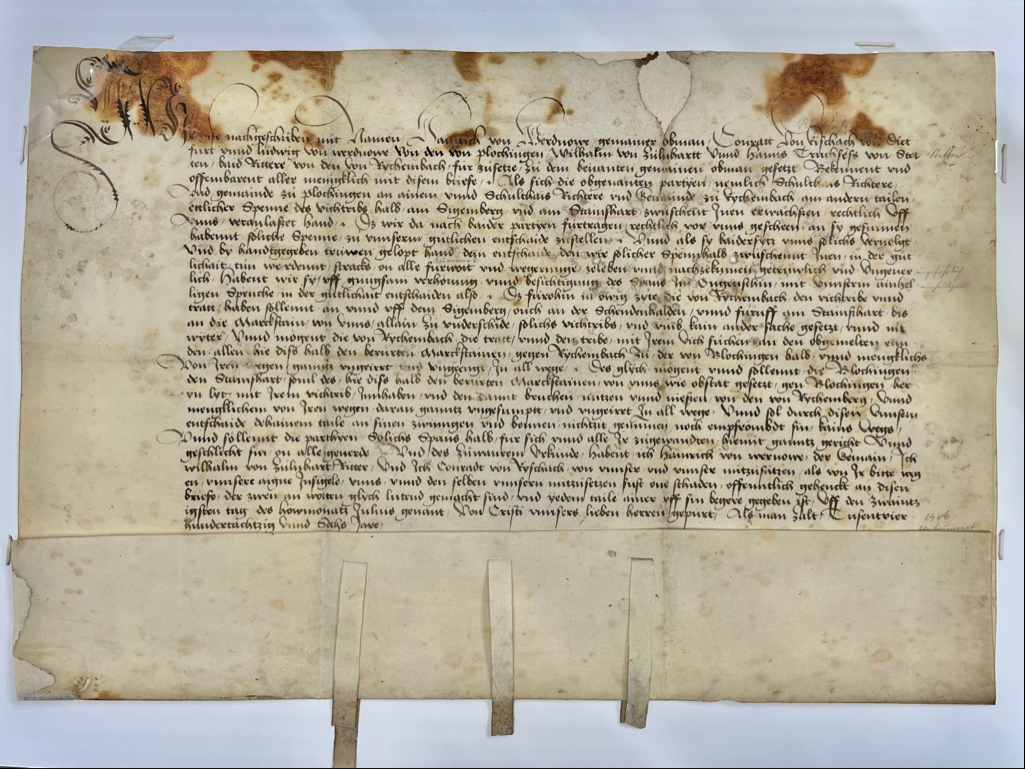 Wir die nachgeschriben mit Namen Hainrich von Werdnowe gemainer obman Conratt von Rischach von Diet
furt vnnd ludwig von werdnowe Von den von plochingen, Wilhalm von Zulnhartt Vnnd Hanns Truchsess von Stet
ten, baid Rittere von den von Rychembach, fur zusetze, zu dem benanten gemainen obman gesetzt Bekennent vnd
offembarent aller mengklich mit disem briefe, Als sich die obgenanten partyen, nemlich Schulthais Richtere,
vnd gemainde zu plochingen an ainem vnnd Schulthais Richtere vnd Gemainde zu Rychembach am andern tailen,
ettlicher Spenne des vichtribs halb am Sigemberg vnd am Stamshart, zwuschent Inen erwachsen rechtlich Vff
vnns, veranlasset hand, Dz wir da nach baider partyen furtragen rechtlich vor vnns gescheen, an sy gesunnen
habennt soliche Spenne, zu vnnserm gutlichen entschaide zustellen, Vnnd als sy baidersytz vnns solichs verwilgt
Vnd by handtgegeben truwen gelopt hand dem entschaide, den wir solicher Spennhalb zwuschennt Inen, in der gut
lichait tun werdennt, stracks on alle furwort vnd wegerunge, geleben vnnd nachzekomen, getruwlich vnd Ungeuer
lich, Habent wir sy, vff gnugsam verhorung, vnnd besichtigung des Spans Im Ougenschin, mit Vnnserm ainhel
ligen Spruche, in der gutlichait entschaiden also, Dz furohin in ewig zyte, die von Rychembach, den vichtribe vnnd
tratt, haben sollennt, an vnnd vff dem Sigemberg, ouch an der Schendenhalden, vnnd furuff am Stamshart, bis
an die Marckstain, von Vnns, allain zu vnderschide, solichs vichtribs, vnd vmb kain ander sache gesetzt, vnnd nit
wyter, Vnnd mogent die von Rychembach, die tratt, vnnd den tribe, mit Irem Vich suchen an den obgemelten ein
den, allen, hie diss halb den berurten Marckstainen, gegen Rychembach zu, der von Blochingen halb, vnnd mengklichs
Von Iren wegen, ganntz vngeirrt vnd vngeengt, In all wege, Des glych, mogent vnnd sollennt, die Blochingen
den Stamshart, souil des, hie diss halb den berurten Marckstainen, von vnns wie obstat gesetzt, gen Blochingen her
vn lyt, mit Irem vichtrib, Innhaben, vnd den damit bruchen nutzen vnnd niessen, von den von Rychemberg, vnnd
mengklichem von Iren wegen, daran ganntz vngesumpt, vnd vngeirrt In all wege, Vnnd sol durch disen Vnnsern
entschaide dehainem taile an sinen zwingen vnd bennen, nichtzit genomen, noch empfrombdt sin, kains wegs,
Vnnd sollennt die partyen Solichs Spans halb, fur sich vnnd alle Ir zugewandten, hiemit ganntz gericht Vnnd
geschlicht sin, on alle geuerde, Vnd des zuwarem Urkunde, habent ich Hainrich von wernowe, der Gemain, Ich
wilhalm von Zulnhart, Ritter, Vnd Ich Conradt von Ryschach, von vnnser vnd vnnser mitzusatzen, als von Ir bitte weg
en, vnnsere aigne Insigele, vnns, vnnd den selben vnnsern mitzusetzen sust one schaden, offenntlich gehenckt an disen
briefe, der zwen an worten glych lutend gemacht sind, vnd yedem taile ainer vff sin begere gegeben ist, Vff den zwaintz
igsten tag, des howmonatz Julius genant, Von Cristi vnnsers lieben herren gepurt, Als man zalt, Tusentvier
hundertachtzig vnnd Sechs Jare
1486